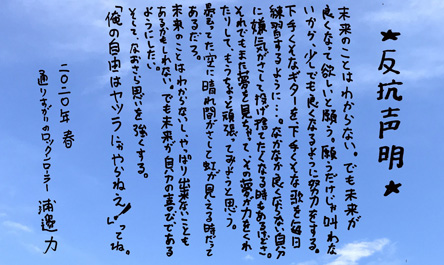 ★反抗声明★
未来のことはわからない。でも未来が
良くなって欲しいと願う。願うだけじゃ叶わな
いから、少しでも良くなるように努力をする。
下手くそなギターを、下手くそな歌を毎日
練習するように…。なかなか良くならない自分
に嫌気がさして投げ捨てたくなる時もあるけどさ。
それでもまだ夢を見ながって、その夢が力をくれ
たりして、もうちょっと頑張ってみようと思う。
曇ってた空に晴れ間がさして虹が見える時だって
あるだろ。
未来のことはわからないし、やっぱり出来ないことも
あるかもしれない。でも未来が自分の喜びである
ようにしたい。
そして、なおさら思いを強くする。
「俺の自由はヤツラにゃやらねえ!」ってね。
二〇二〇年 春
通りすがりのロックンローラー 浦邉 力